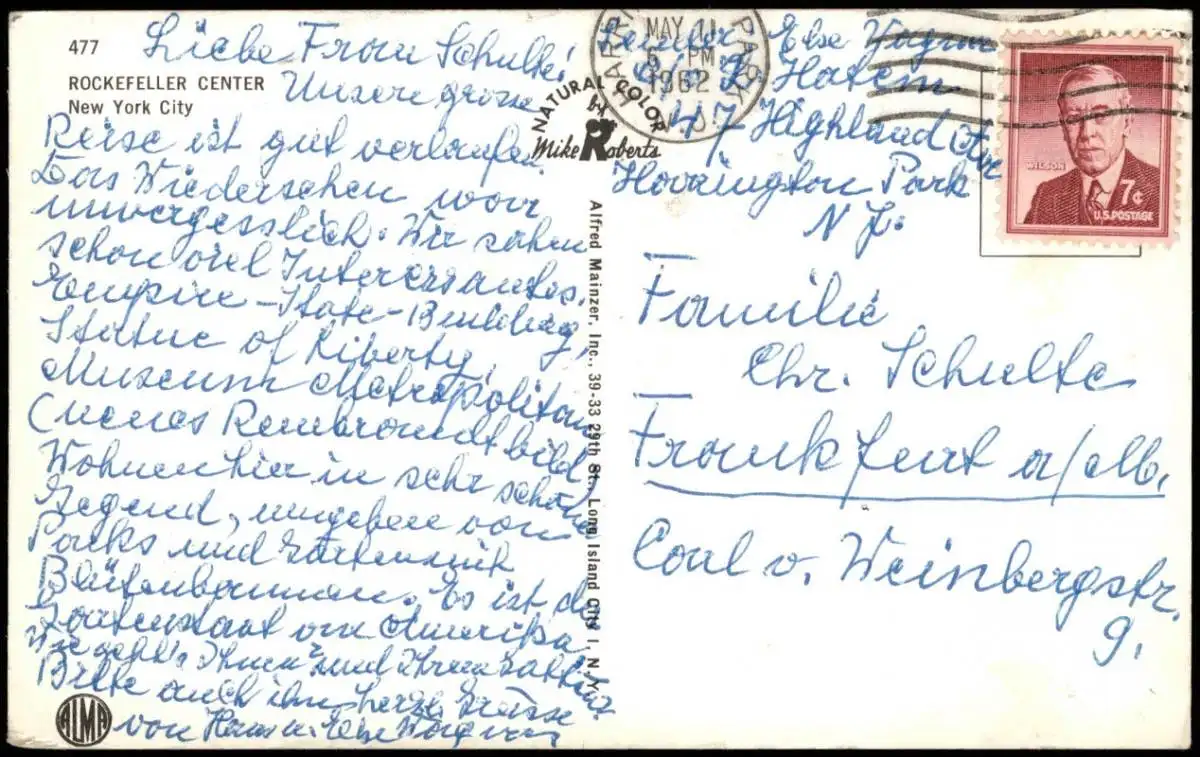 477
ROCKEFELLER CENTER
New York City
Liebe Frau Schulte!
Unsere grosse
Reise ist gut verlaufen.
Das Wiedersehen war
unvergesslich. Wir sahen
schon viel Interessantes.
Empire-State-Building,
Statue of Liberty,
Museum Metropolitan
(neues Rembrandtbild
Wohnen hier in sehr schöner
Gegend, umgeben von
Parks und Gärten mit
Blütenbäumen. Es ist der
Gartenstaat von Amerika.
Wie geht's Ihnen und Ihrem Gatten?
Bitte auch ihm herzl. Grüsse
von Hans u. Else Wagner
ALMA
NATURAL COLOR
by
Mike Roberts
Alfred Mainzer, Inc., 39-33 29th St., Long Island City 1, N. Y.
MAY 11
PM
1962
PARK
Else Wagner
Hatem
47 Highland Av
Harrington Park
N J.
WILSON
7¢
U.S. POSTAGE
Familie
Chr. Schulte
Frankfurt a/M.
Carl v. Weinbergstr.
9.